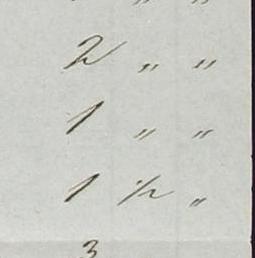 " "
2 " "
1 " "
1 1/2 "
3